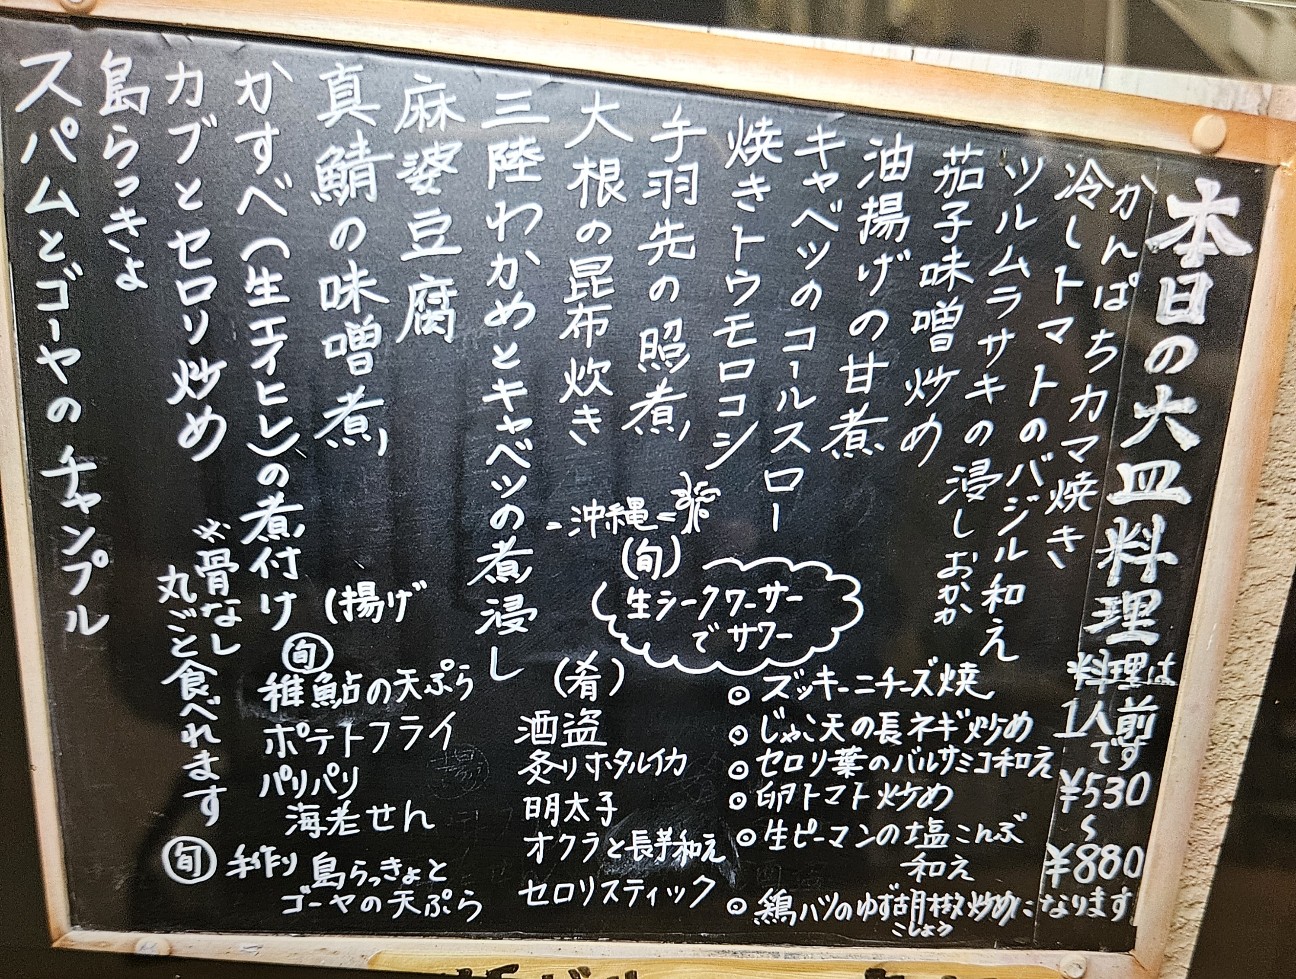 本日の大皿料理
料理は
1人前
です
¥530
〜
¥880
になります
かんぱちカマ焼き
冷しトマトのバジル和え
ツルムラサキの浸しおかか
茄子味噌炒め
油揚げの甘煮
キャベツのコールスロー
焼きトウモロコシ
手羽先の照煮
大根の昆布炊き
三陸わかめとキャベツの煮浸し
麻婆豆腐
真鯖の味噌煮
かすべ(生エイヒレ)の煮付け
※骨なし
丸ごと食べれます
カブとセロリ炒め
島らっきょ
スパムとゴーヤのチャンプル
-沖縄-
(旬)
生シークワーサー
でサワー
◎ズッキーニチーズ焼
◎じゃこ天の長ネギ炒め
◎セロリ葉のバルサミコ和え
◎卵トマト炒め
◎生ピーマンの塩こんぶ
和え
◎鶏ハツのゆず胡椒炒め
こしょう
(肴)
酒盗
炙りホタルイカ
明太子
オクラと長芋和え
セロリスティック
(揚げ
旬
稚鮎の天ぷら
ポテトフライ
パリパリ
海老せん
旬 手作り 島らっきょと
ゴーヤの天ぷら